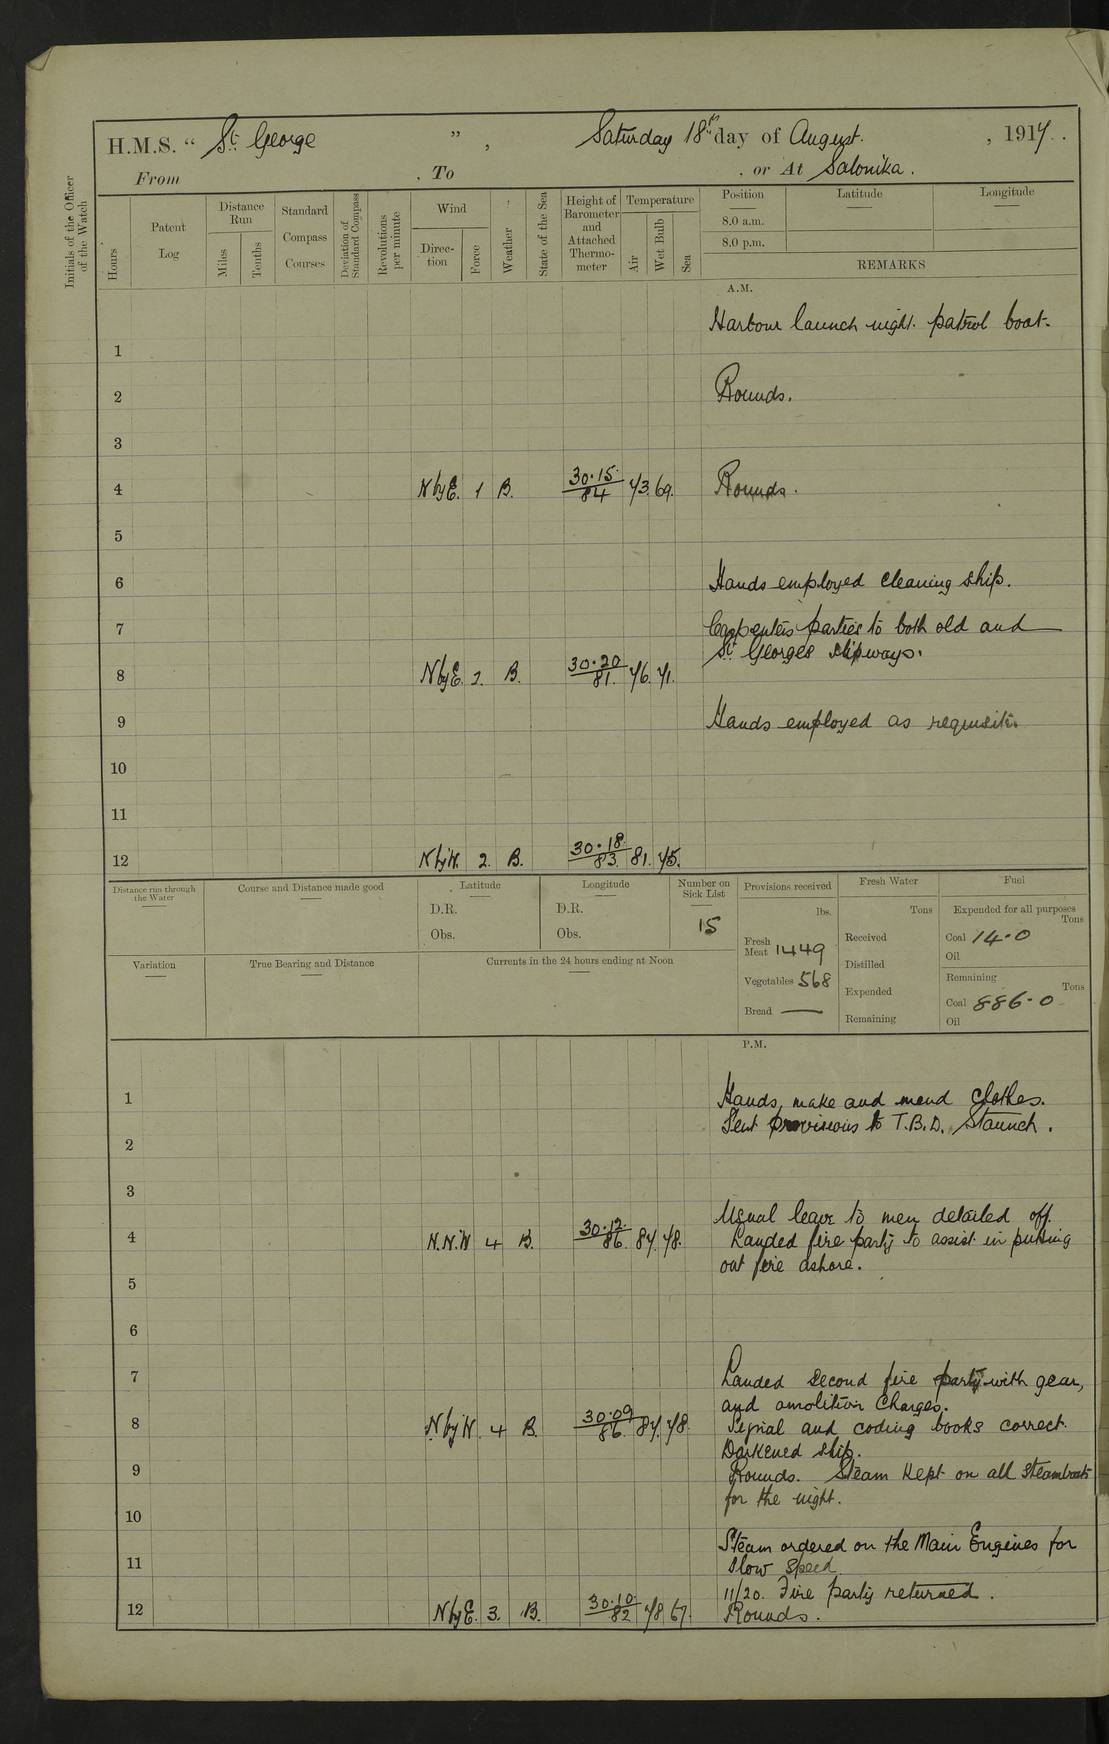 H.M.S. “ St George ”, Saturday 18th day of August. , 1917.
From , To , or At Salonika.
Initials of the Officer of the Watch
Hours
Patent Log
Distance Run
Miles
Tenths
Standard Compass Courses
Deviation of Standard Compass
Revolutions per minute
Wind
Direction
Force
Weather
State of the Sea
Height of Barometer and Attached Thermometer
Temperature
Air
Wet Bulb
Sea
Position Latitude Longitude
8.0 a.m.
8.0 p.m.
REMARKS
A.M.
Harbour launch night patrol boat.
1
2 Rounds.
3
4 N by E. 1 B. 30.15/84 73. 69. Rounds.
5
6 Hands employed cleaning ship.
7 Carpenters parties to both old and
St Georges slipways.
8 N by E. 2. B. 30.20/81. 76. 71.
9 Hands employed as requisite.
10
11
12 N by W. 2. B. 30.18/83 81. 75.
Distance run through the Water
Course and Distance made good
Latitude
D.R.
Obs.
Longitude
D.R.
Obs.
Number on Sick List
15
Provisions received
lbs.
Fresh Meat 1449
Vegetables 568
Bread —
Fresh Water
Tons
Received
Distilled
Expended
Remaining
Fuel
Expended for all purposes
Tons
Coal 14.0
Oil
Remaining
Tons
Coal 886.0
Oil
Variation
True Bearing and Distance
Currents in the 24 hours ending at Noon
P.M.
1 Hands, make and mend clothes.
Sent provisions to T.B.D. Staunch.
2
3
Usual leave to men detailed off.
4 N.N.W 4 B. 30.12/86 87. 78. Landed fire party to assist in putting
out fire ashore.
5
6
7 Landed second fire party with gear,
and amolition Charges.
8 N by W. 4 B. 30.09/86. 87. 78. Signal and coding books correct.
Darkened ship.
9 Rounds. Steam kept on all steamboats
for the night.
10
Steam ordered on the Main Engines for
11 slow speed.
11/20. Fire party returned.
12 N by E. 3. B. 30.10/82 78 67. Rounds.